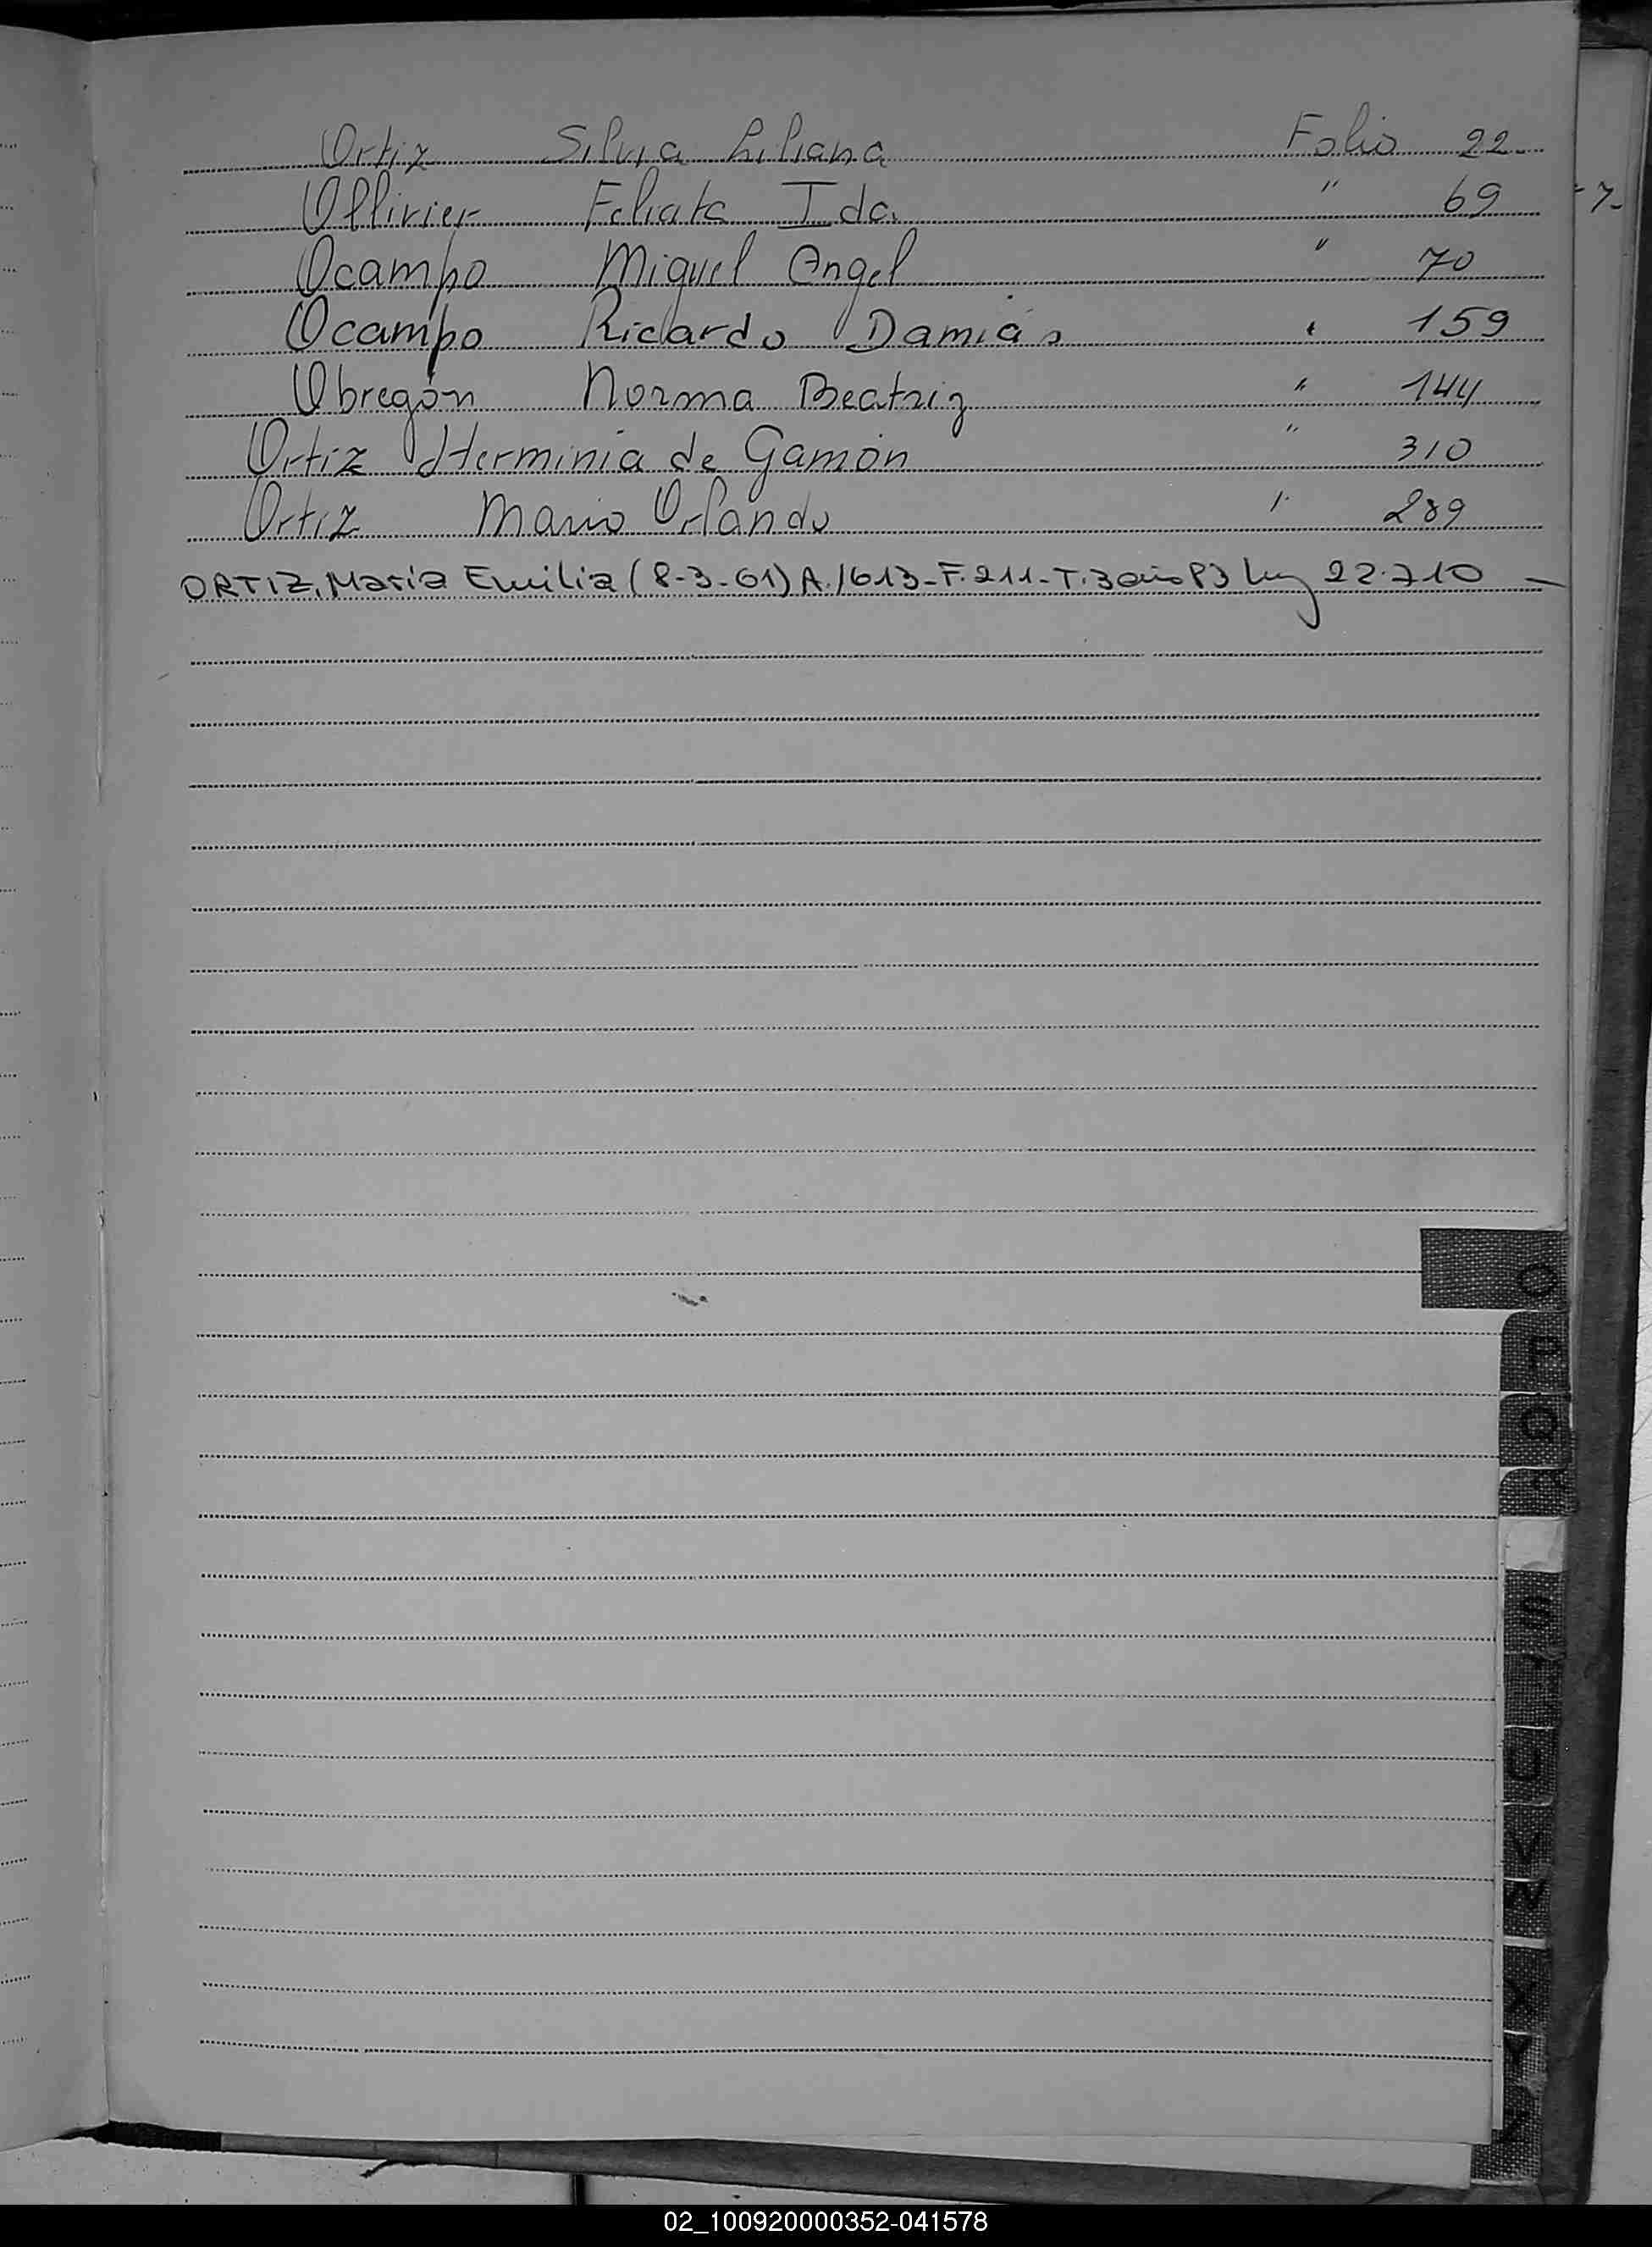 Ortiz Silvia Liliana Folio 22-
Ollivier Ida. " 69
Ocampo Miguel Angel " 70
Ocampo Ricardo Damián " 159
Obregón Norma Beatriz " 144
Ortiz Herminia de Gamón " 310
Ortiz Mario Orlando " 289
ORTIZ, María Emilia (8-3-61) A. 1613-F. 211-T. 3 año 83 ley 22.710 -
O
P
Q
S
U
V
W
X
Y
02_100920000352-041578